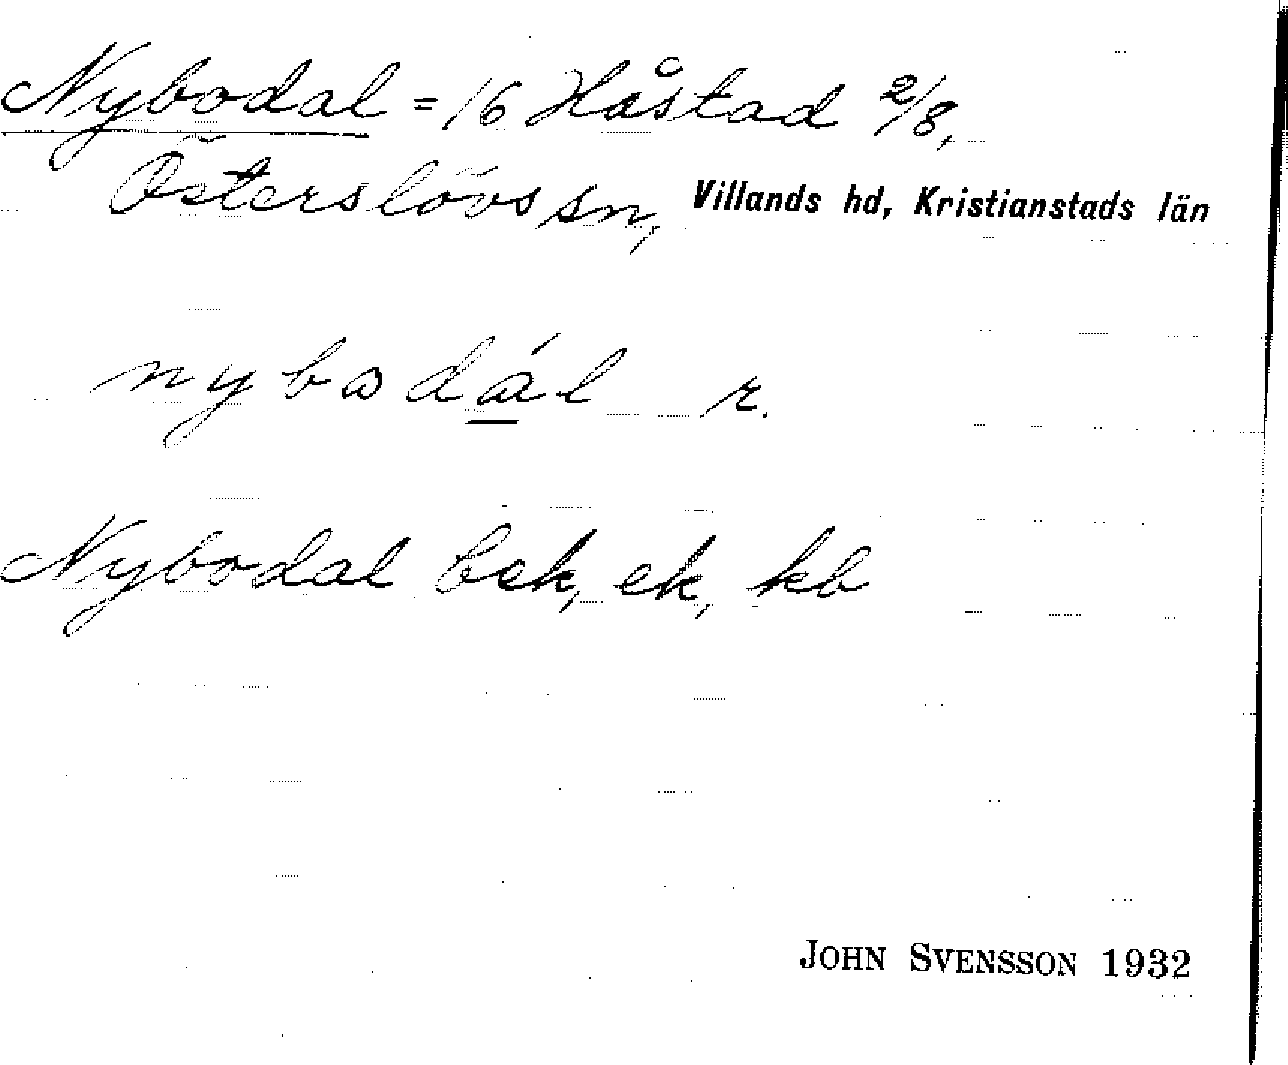 Nybodal = 16 Håstad 2/8,
Österslövs sn, Villands hd, Kristianstads län
nybodál r.
Nybodal bek, ek, kb
JOHN SVENSSON 1932